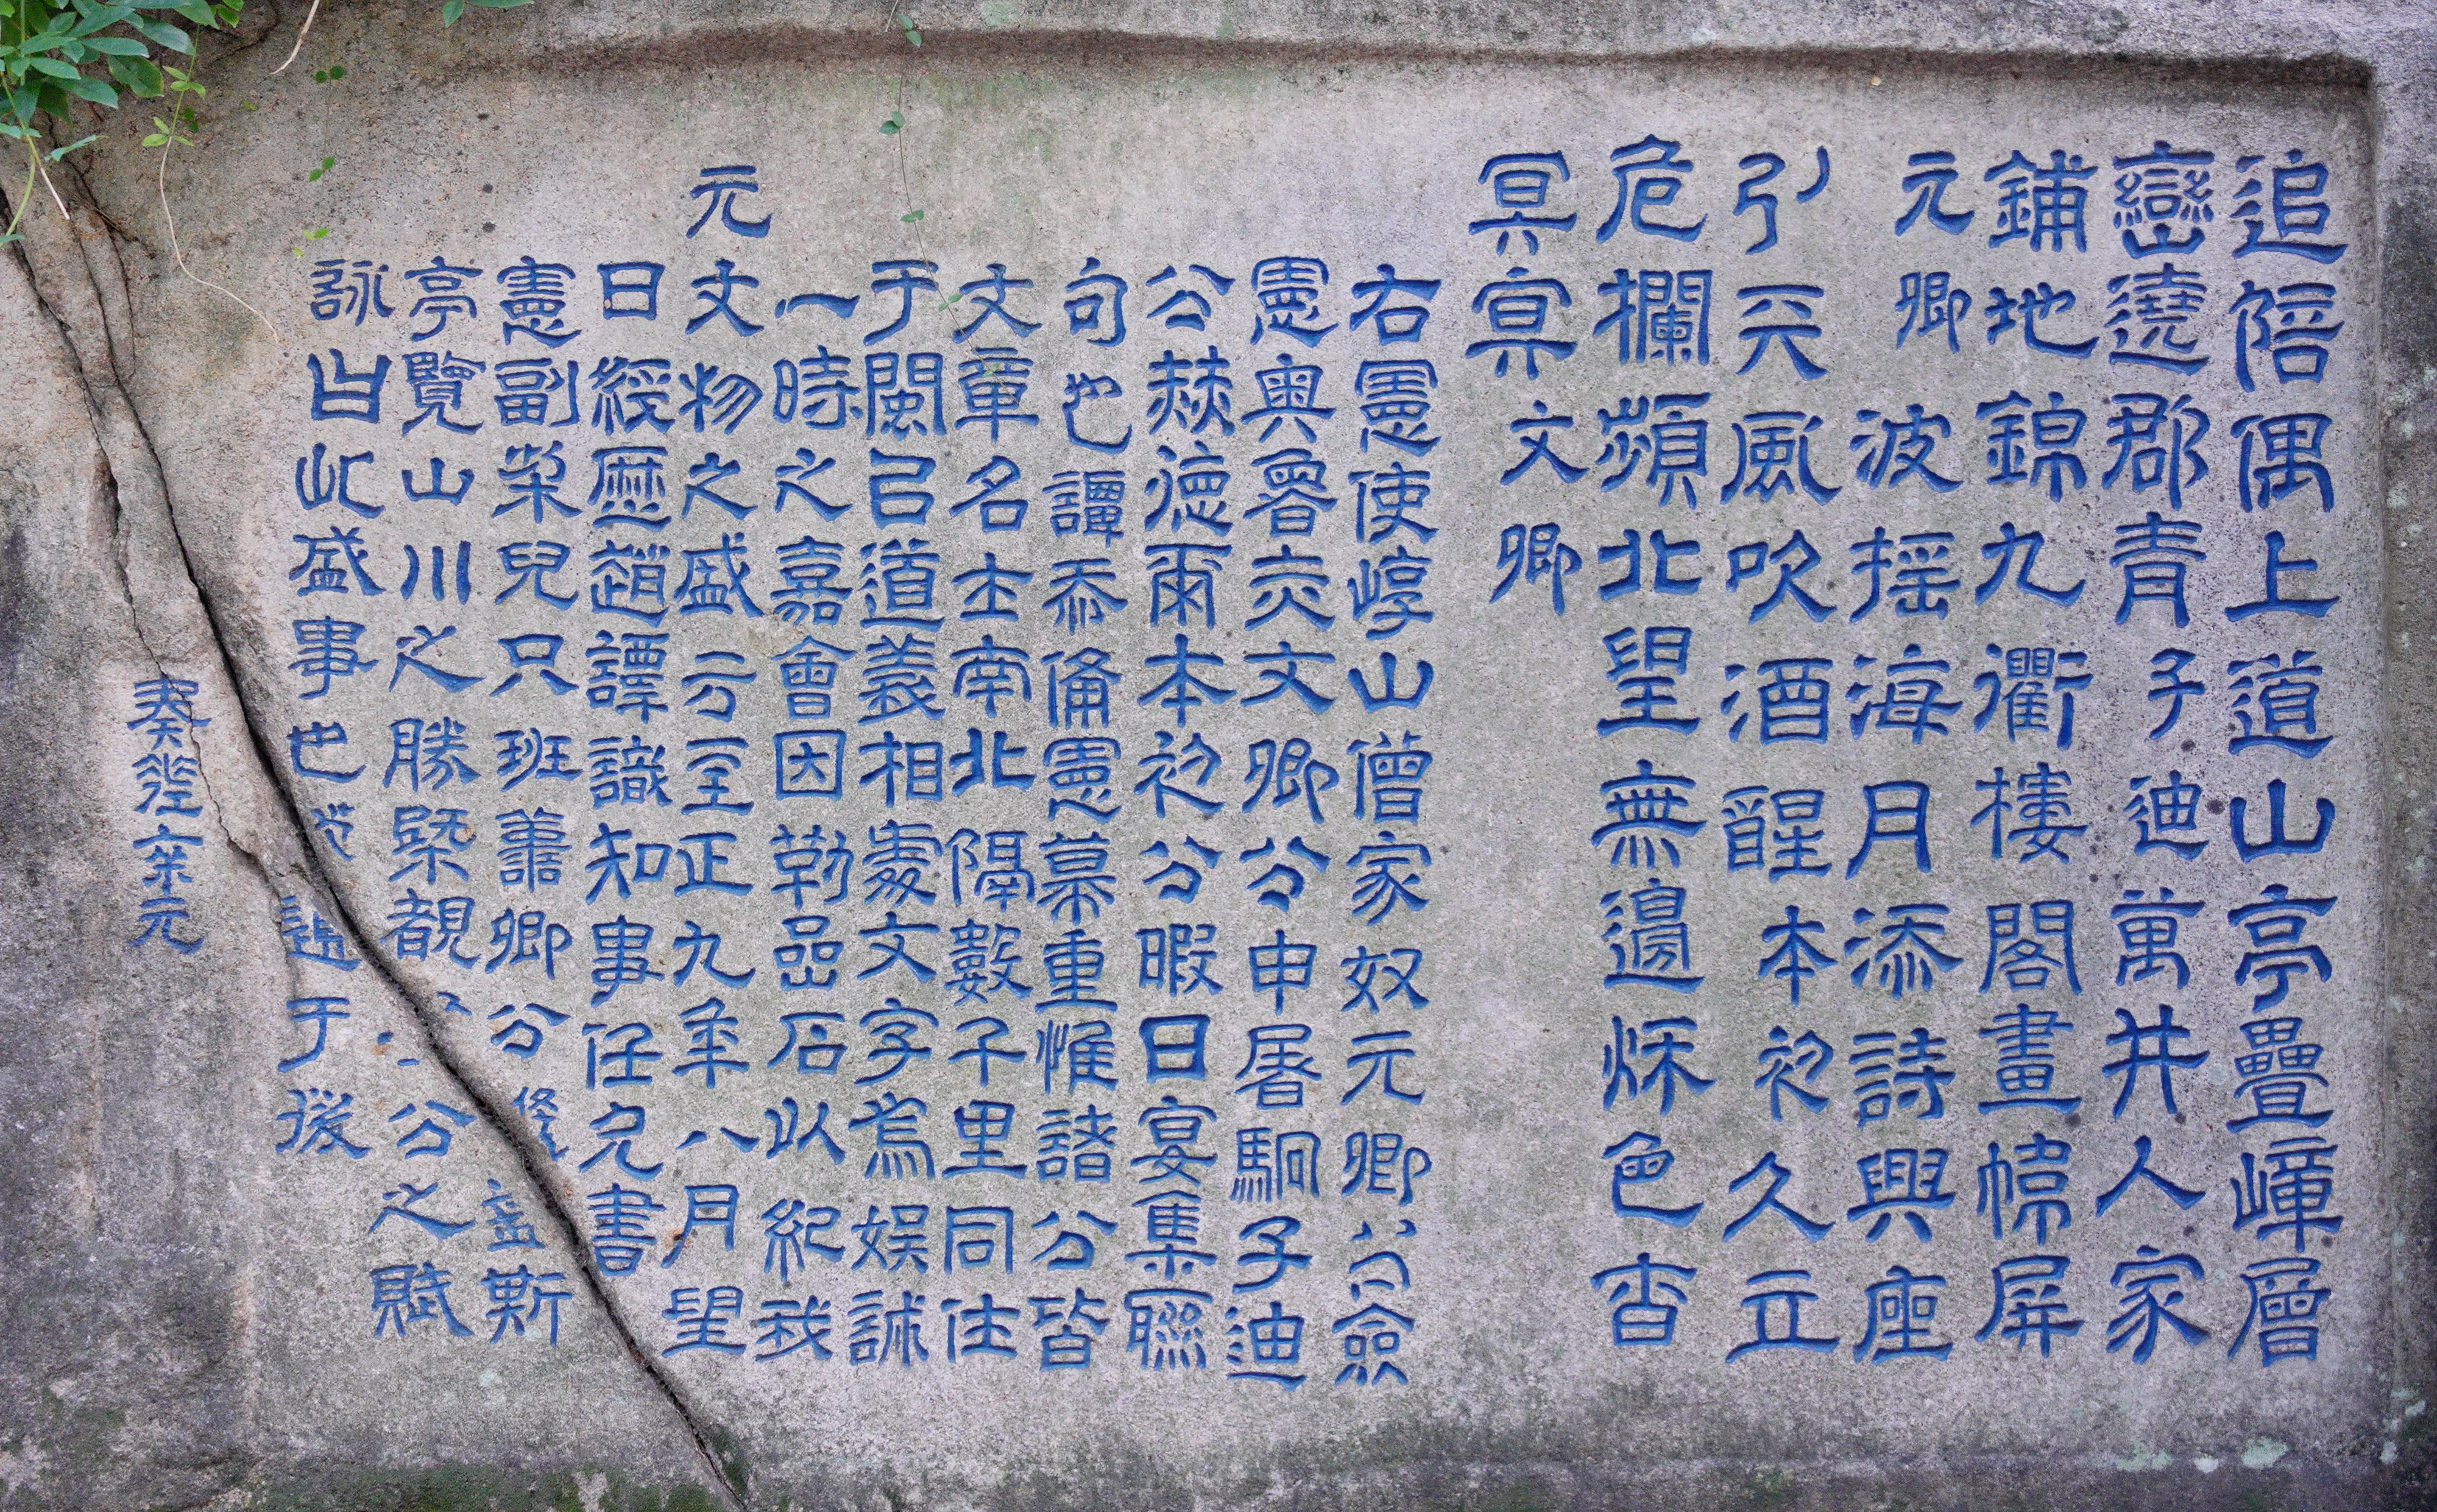 追陪偶上道山亭疊嶂層
巒遶郡青子迪萬井人家
鋪地錦九衢樓閣畫幛屏
元卿波搖海月添詩興座
引天風吹酒醒本初久立
危欄頻北望無邊秌色杳
冥冥文卿
右憲使崞山僧家奴元卿公僉
憲奧魯赤文卿公申屠駉子迪
公赫德爾本初公暇日宴集聯
句也譚忝備憲幕重惟諸公皆
文章名士南北隔數千里同仕
于閩以道義相處文字為娛誠
一時之嘉會因勒嵓石以紀我
元文物之盛云至正九年八月望
日經歷趙譚識知事任允書
憲副桒兒只班蕭卿公後孟斯
亭覽山川之勝槩覩公之賦
詠由此盛事也 遺于後
奏差六